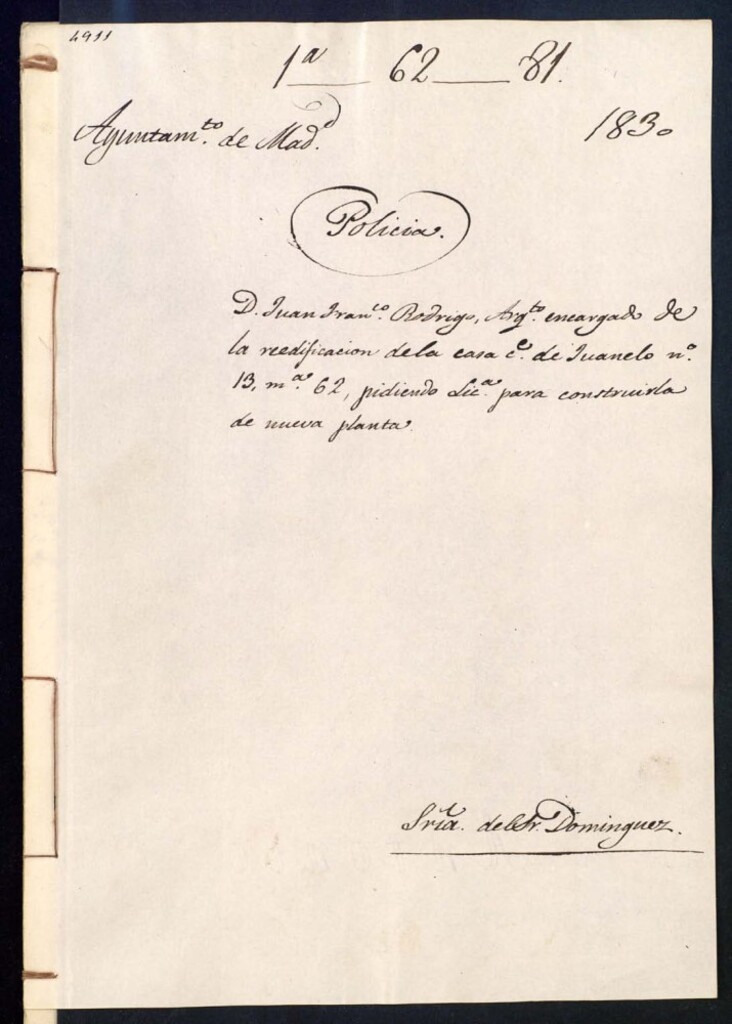 4911
1ª 62 81.
Ayuntam.to de Mad.d
1830
Policia.
D. Juan Fran.co Rodrigo, Arq.to encargado de
la reedificacion de la casa c.e de Juanelo n.º
13, m.ª 62, pidiendo Lic.ª para construirla
de nueva planta.
Sría. del Sr. Dominguez.